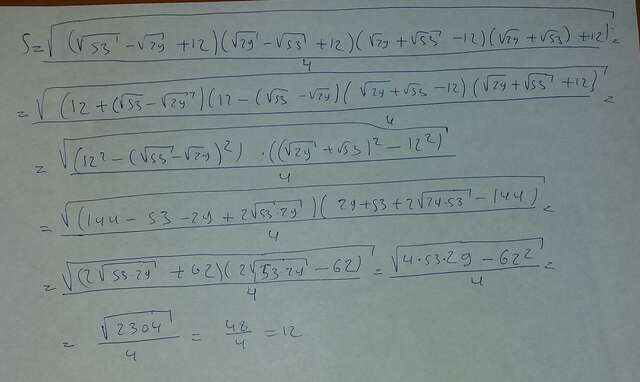 S = √(√53 - √29 + 12)(√29 - √53 + 12)(√29 + √53 - 12)(√29 + √53) + 12) / 4 =
= √(12 + (√53 - √29)(12 - (√53 - √29)(√29 + √53 - 12)(√29 + √53 + 12) / 4 =
= √(12² - (√53 - √29)²) · ((√29 + √53)² - 12²) / 4
= √(144 - 53 - 29 + 2√53·29)(29 + 53 + 2√29·53 - 144) / 4 =
= √(2√53·29 + 62)(2√53·29 - 62) / 4 = √4·53·29 - 62² / 4 =
= √2304 / 4 = 48 / 4 = 12